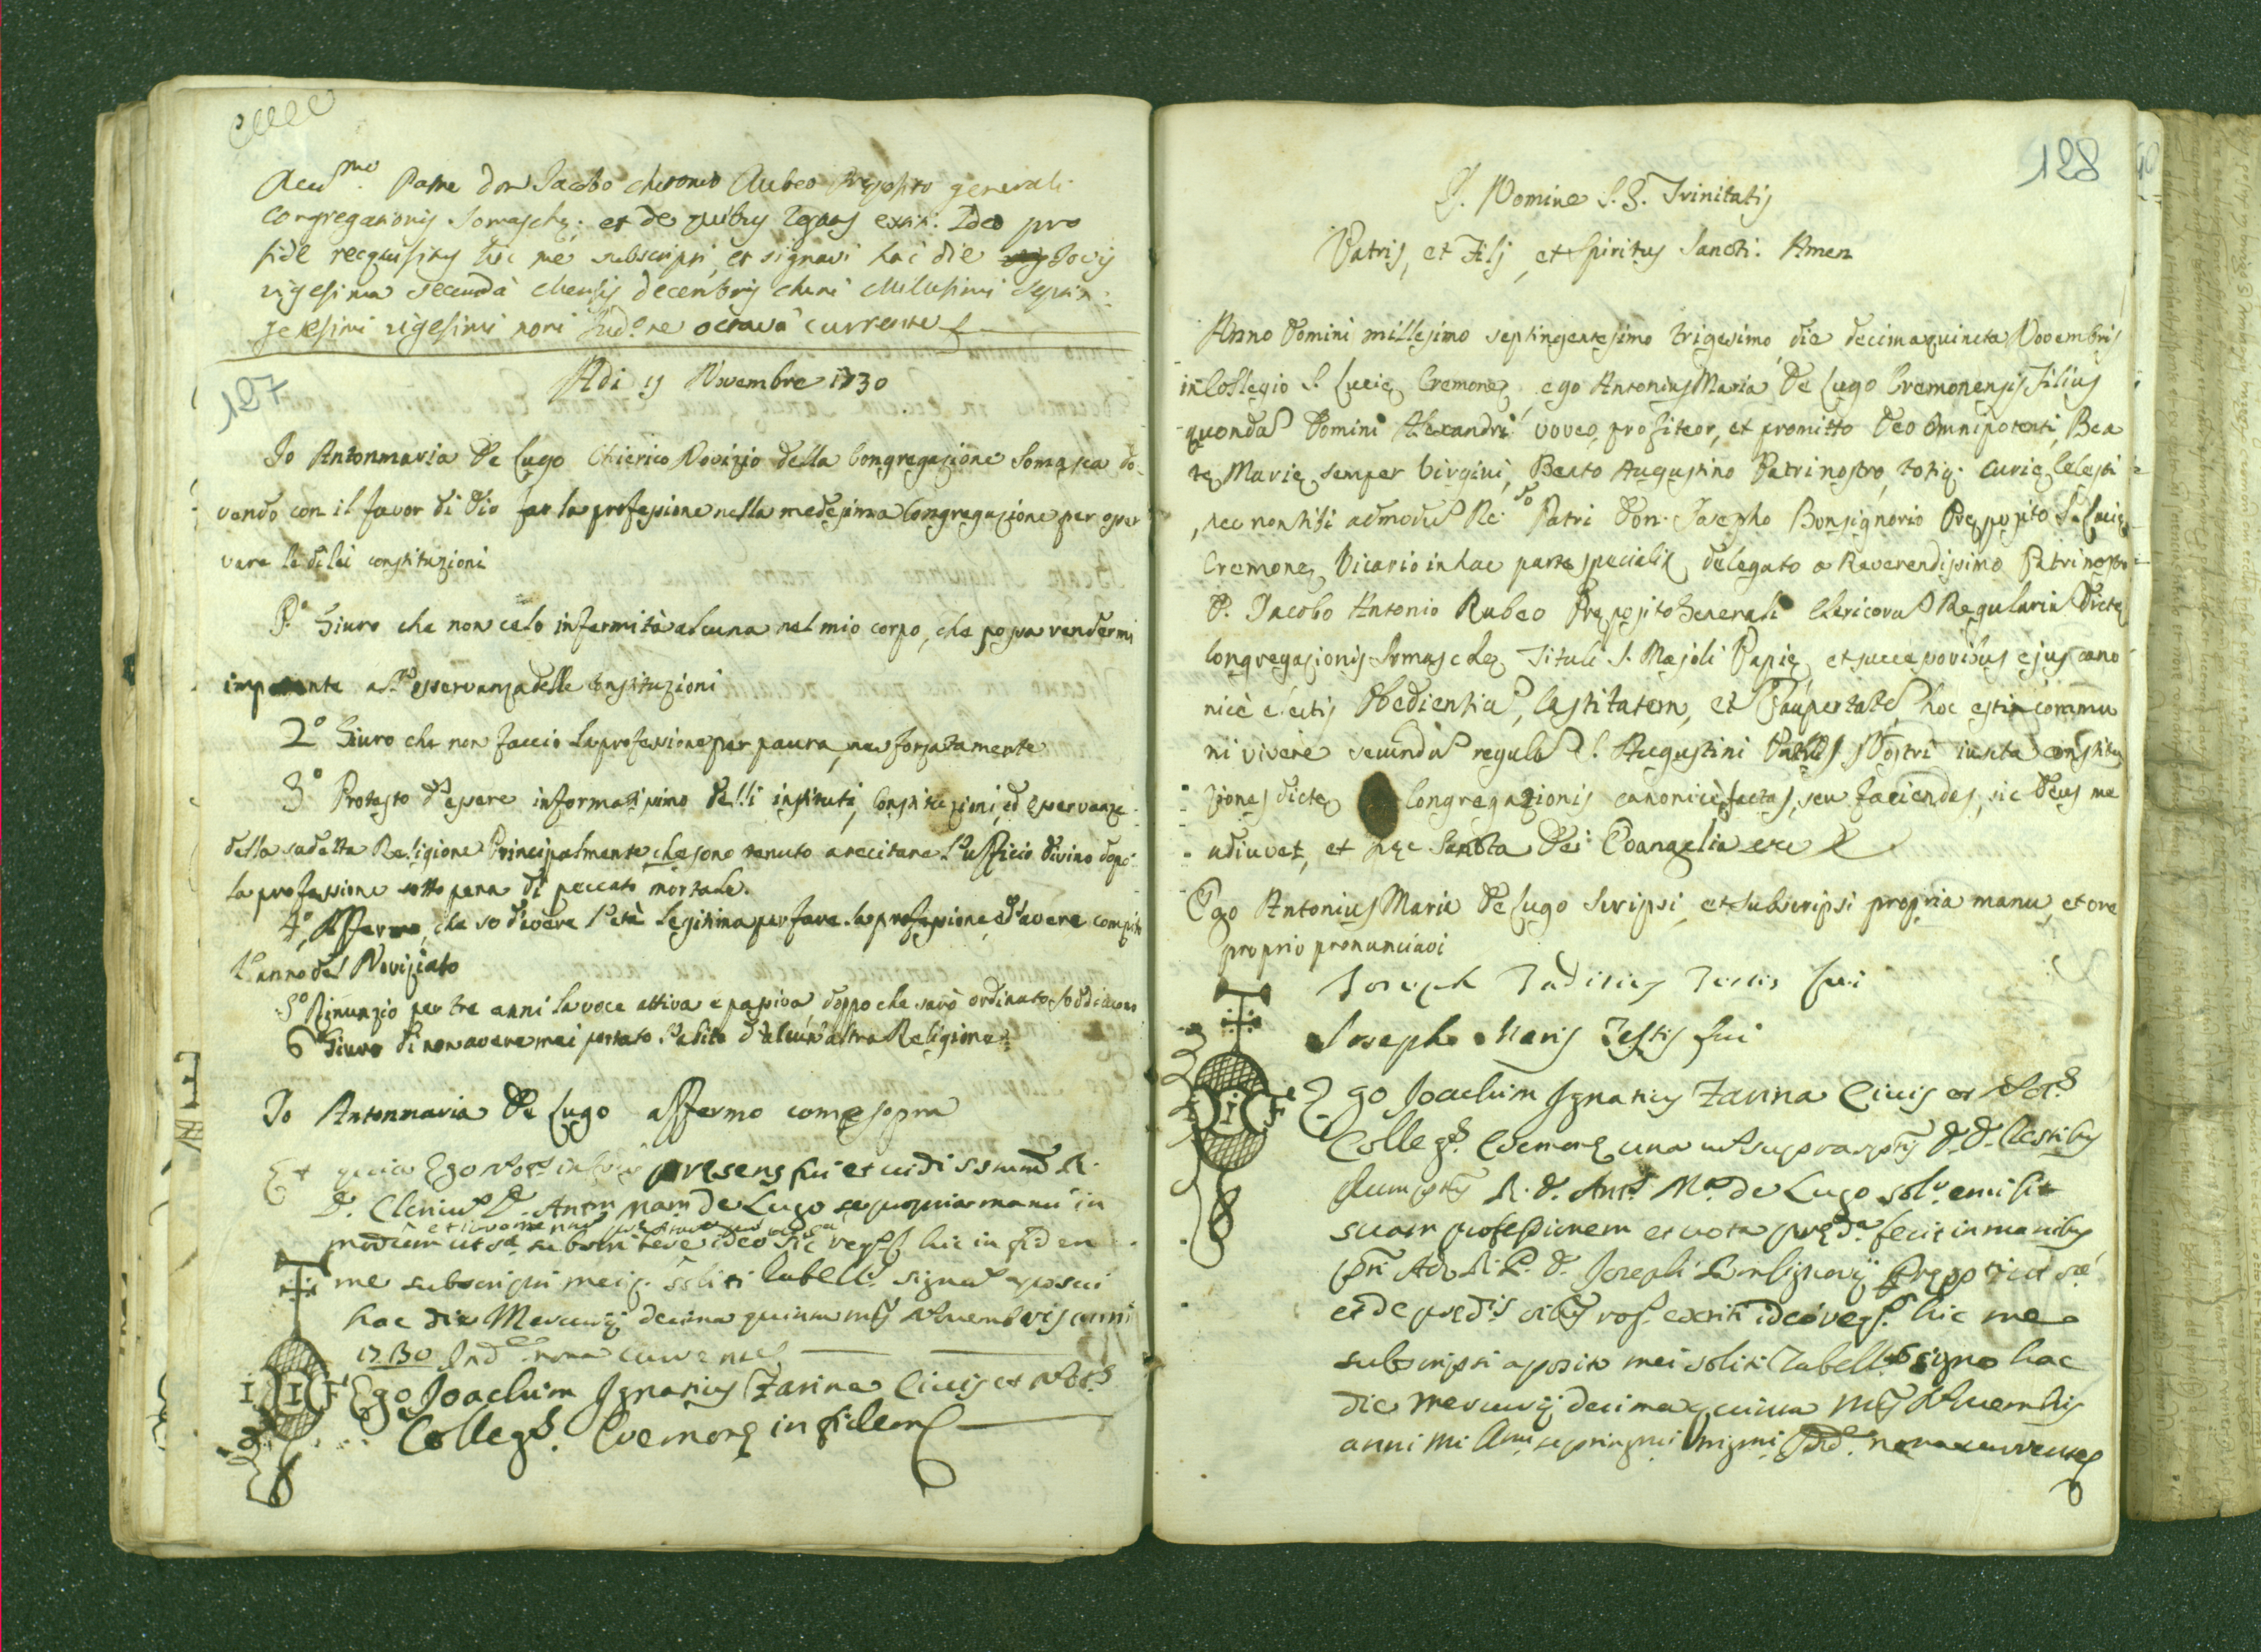 Patre Don Jacobo Antonio Rubeo Preposito generali
Congregationis Somaschę; et de rogatus Ideo pro
fide requisitus hic me subscripsi, et signavi hac die Jovis
vigesima secunda Mensis Decembris Anni Millesimi Septin-
gentesimi vigesimi noni Ind.ne octava currente
127
Adi 15 Novembre 1730
Io Antonmaria De Lugo Chierico Novizio della Congregazione Somasca do-
vendo con il favor di Dio far la professione nella medesima Congregazione per osser
vare le di lei constituzioni
P.o Giuro che non celo infermità alcuna nel mio corpo, che possa rendermi
impotente all' osservanza delle Constituzioni
2.o Giuro che non faccio la professione per paura, ne forzatamente
3.o Protesto d'essere informatissimo delli instituti, Constituzioni, ed osservanze
della sudetta Religione Principalmente, che sono tenuto a recitare l'ufficio divino dopo
la professione sotto pena di peccato mortale.
4.o Affermo, che so d'avere l'età legitima per fare la professione, e d'avere compito
l'anno del Noviziato
5.o Rinunzio per tre anni la voce attiva e passiva doppo che sarò ordinato Soddiacono
6.o Giuro di non avere mai portato l'abito d'alcun'altra Religione
Io Antonmaria De Lugo affermo come sopra
Et quia Ego presens fui et vidi R.
D. Clericum D. Ant.m Mariam de Lugo se propria manu in
modum ut s.a ideo sic hic in fidem
me subscripsi meiq. soliti Tabell. signum apposui
hac die Mercurij decima quinta Novembris anni
1730 Ind.e nona currente
I I F
Ego Joachim Ignatius Zarina Civis et Not.s
Colleg.s Cremonę in fidem
128
I. Nomine S.S. Trinitatis
Patris, et Filj, et Spiritus Sancti. Amen
Anno Domini millesimo septingentesimo trigesimo, die decimaquinta Novembris
in Collegio S. Lucię Cremonę, ego Antonius Maria De Lugo Cremonensis Filius
quondã Domini Alexandri voveo, profiteor, et promitto Deo Omnipotenti, Bea
tę Marię semper Virgini, Beato Augustino Patri nostro, totiq. Curię Celesti
, nec non tibi admodũ Re.do Patri Don. Josepho Bonsignorio Pręposito S. Lucię
Cremonę, Vicario in hac parte specialit. delegato a Reverendissimo Patri nostro
D. Jacobo Antonio Rubeo Pręposito Generali Clericorũ Regulariũ Dictę
Congregasionis Somaschę Tituli S. Majoli Papię, et successoribus ejus cano
nicè electis Obedientiã, Castitatem, et Paupertatẽ hoc est in commu
ni vivere secundũ regulã S. Augustini Patris Nostri iuxta constitu
ziones dictę Congregazionis canonicè factas, seu faciendas, sic Deus me
adiuvet, et hęc Sancta Dei Evangelia
Ego Antonius Maria De Lugo scripsi, et subscripsi propria manu, et ore
proprio pronunciavi
Joseph Testis fui
Joseph Testis fui
I I F
Ego Joachim Ignatius Zarina Civis et Not.s
Colleg.s Cremonę una D.D. Testibus
R. D. Ant. M.a de Lugo emisit
suam professionem et vota pręd.a fecit in manibus
Adm. R. P. D. Josephi Bonsignorij Prępositi
et de pręd.is ideo hic me
subscripsi apposito mei soliti Tabell. signo hac
die Mercurij decima quinta Novembris
anni nona currente